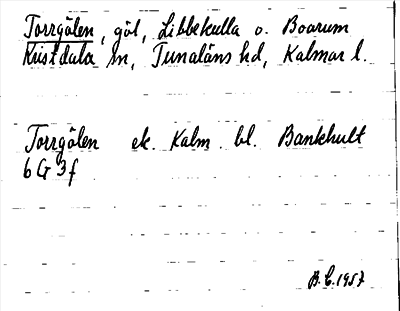 Torrgölen, göl, Libbekulla o. Boarum
Kristdala sn, Tunaläns hd, Kalmar l.
Torrgölen ek. Kalm. bl. Bankhult
6 G 3 f
B.C. 1957